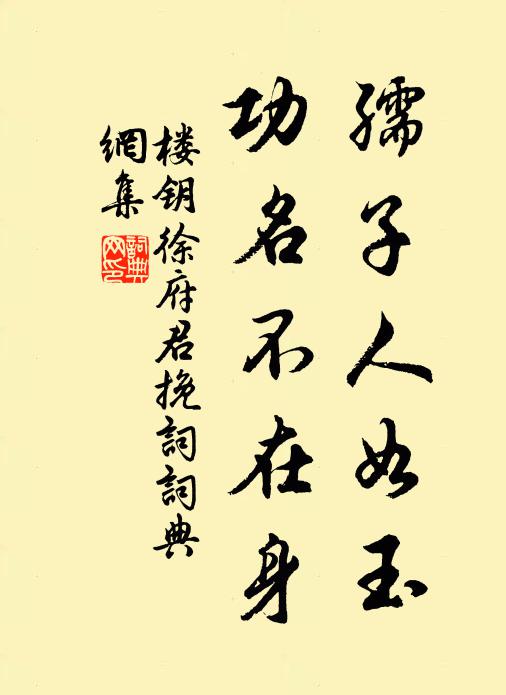 孺子人如玉
功名不在身
楼钥徐府君挽詞詞典
網集
詞典
网印